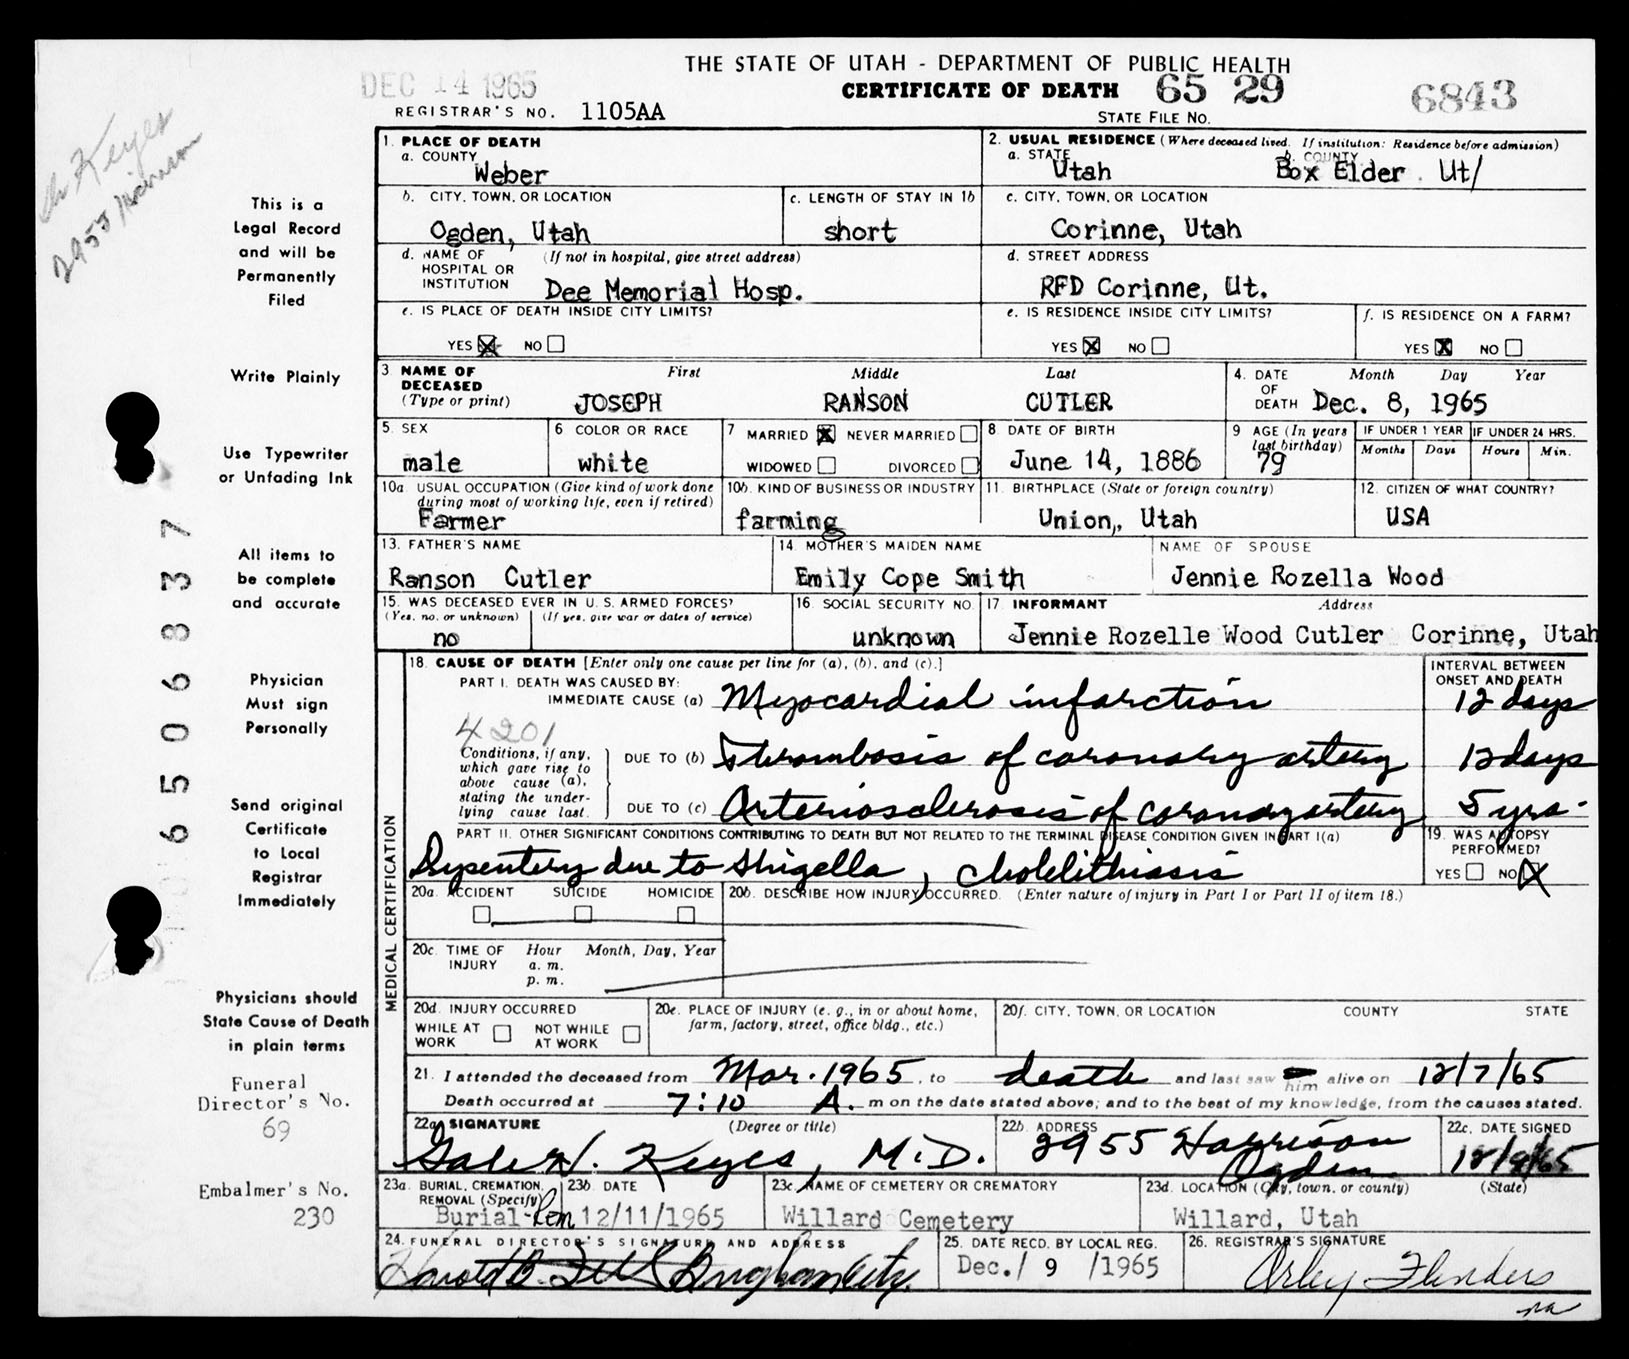 THE STATE OF UTAH - DEPARTMENT OF PUBLIC HEALTH
DEC 14 1965
CERTIFICATE OF DEATH 65 29 6843
REGISTRAR'S NO. 1105AA
STATE FILE NO.
Keyes
2955
This is a
Legal Record
and will be
Permanently
Filed
Write Plainly
Use Typewriter
or Unfading Ink
All items to
be complete
and accurate
Physician
Must sign
Personally
Send original
Certificate
to Local
Registrar
Immediately
Physicians should
State Cause of Death
in plain terms
Funeral
Director's No.
69
Embalmer's No.
230
65 06837
1. PLACE OF DEATH
a. COUNTY
Weber
2. USUAL RESIDENCE (Where deceased lived. If institution: Residence before admission)
a. STATE Utah b. COUNTY Box Elder Ut/
b. CITY, TOWN, OR LOCATION
Ogden, Utah
c. LENGTH OF STAY IN 1b
short
c. CITY, TOWN, OR LOCATION
Corinne, Utah
d. NAME OF HOSPITAL OR INSTITUTION (If not in hospital, give street address)
Dee Memorial Hosp.
d. STREET ADDRESS
RFD Corinne, Ut.
e. IS PLACE OF DEATH INSIDE CITY LIMITS?
YES X NO
e. IS RESIDENCE INSIDE CITY LIMITS?
YES X NO
f. IS RESIDENCE ON A FARM?
YES X NO
3 NAME OF DECEASED (Type or print)
First Middle Last
JOSEPH RANSON CUTLER
4. DATE OF DEATH Month Day Year
Dec. 8, 1965
5. SEX
male
6 COLOR OR RACE
white
7 MARRIED X NEVER MARRIED
WIDOWED DIVORCED
8 DATE OF BIRTH
June 14, 1886
9 AGE (In years last birthday)
79
IF UNDER 1 YEAR
Months Days
IF UNDER 24 HRS.
Hours Min.
10a. USUAL OCCUPATION (Give kind of work done during most of working life, even if retired)
Farmer
10b. KIND OF BUSINESS OR INDUSTRY
farming
11. BIRTHPLACE (State or foreign country)
Union, Utah
12. CITIZEN OF WHAT COUNTRY?
USA
13. FATHER'S NAME
Ranson Cutler
14. MOTHER'S MAIDEN NAME
Emily Cope Smith
NAME OF SPOUSE
Jennie Rozella Wood
15. WAS DECEASED EVER IN U. S. ARMED FORCES?
(Yes, no, or unknown) (If yes, give war or dates of service)
no
16. SOCIAL SECURITY NO.
unknown
17. INFORMANT Address
Jennie Rozelle Wood Cutler Corinne, Utah
MEDICAL CERTIFICATION
18. CAUSE OF DEATH [Enter only one cause per line for (a), (b), and (c).]
INTERVAL BETWEEN ONSET AND DEATH
PART I. DEATH WAS CAUSED BY:
IMMEDIATE CAUSE (a) Myocardial infarction 12 days
4201
Conditions, if any, which gave rise to above cause (a), stating the underlying cause last.
DUE TO (b) Thrombosis of coronary artery 12 days
DUE TO (c) Arteriosclerosis of coronary artery 5 yrs.
PART II. OTHER SIGNIFICANT CONDITIONS CONTRIBUTING TO DEATH BUT NOT RELATED TO THE TERMINAL DISEASE CONDITION GIVEN IN PART I(a)
Dysentery due to Shigella, cholelithiasis
19. WAS AUTOPSY PERFORMED?
YES NO X
20a. ACCIDENT SUICIDE HOMICIDE
20b. DESCRIBE HOW INJURY OCCURRED. (Enter nature of injury in Part I or Part II of item 18.)
20c. TIME OF INJURY Hour Month, Day, Year
a. m.
p. m.
20d. INJURY OCCURRED
WHILE AT WORK NOT WHILE AT WORK
20e. PLACE OF INJURY (e. g., in or about home, farm, factory, street, office bldg., etc.)
20f. CITY, TOWN, OR LOCATION COUNTY STATE
21. I attended the deceased from Mar. 1965, to death and last saw him alive on 12/7/65
Death occurred at 7:10 A. m on the date stated above; and to the best of my knowledge, from the causes stated.
22a. SIGNATURE (Degree or title)
Gale H. Keyes, M.D.
22b. ADDRESS
2955 Harrison
Ogden.
22c. DATE SIGNED
12/8/65
23a. BURIAL, CREMATION, REMOVAL (Specify)
Burial-Rem
23b. DATE
12/11/1965
23c. NAME OF CEMETERY OR CREMATORY
Willard Cemetery
23d. LOCATION (City, town, or county) (State)
Willard, Utah
24. FUNERAL DIRECTOR'S SIGNATURE AND ADDRESS
Harold B. Felt Brigham City.
25. DATE RECD. BY LOCAL REG.
Dec./ 9 /1965
26. REGISTRAR'S SIGNATURE
Orley Flinders